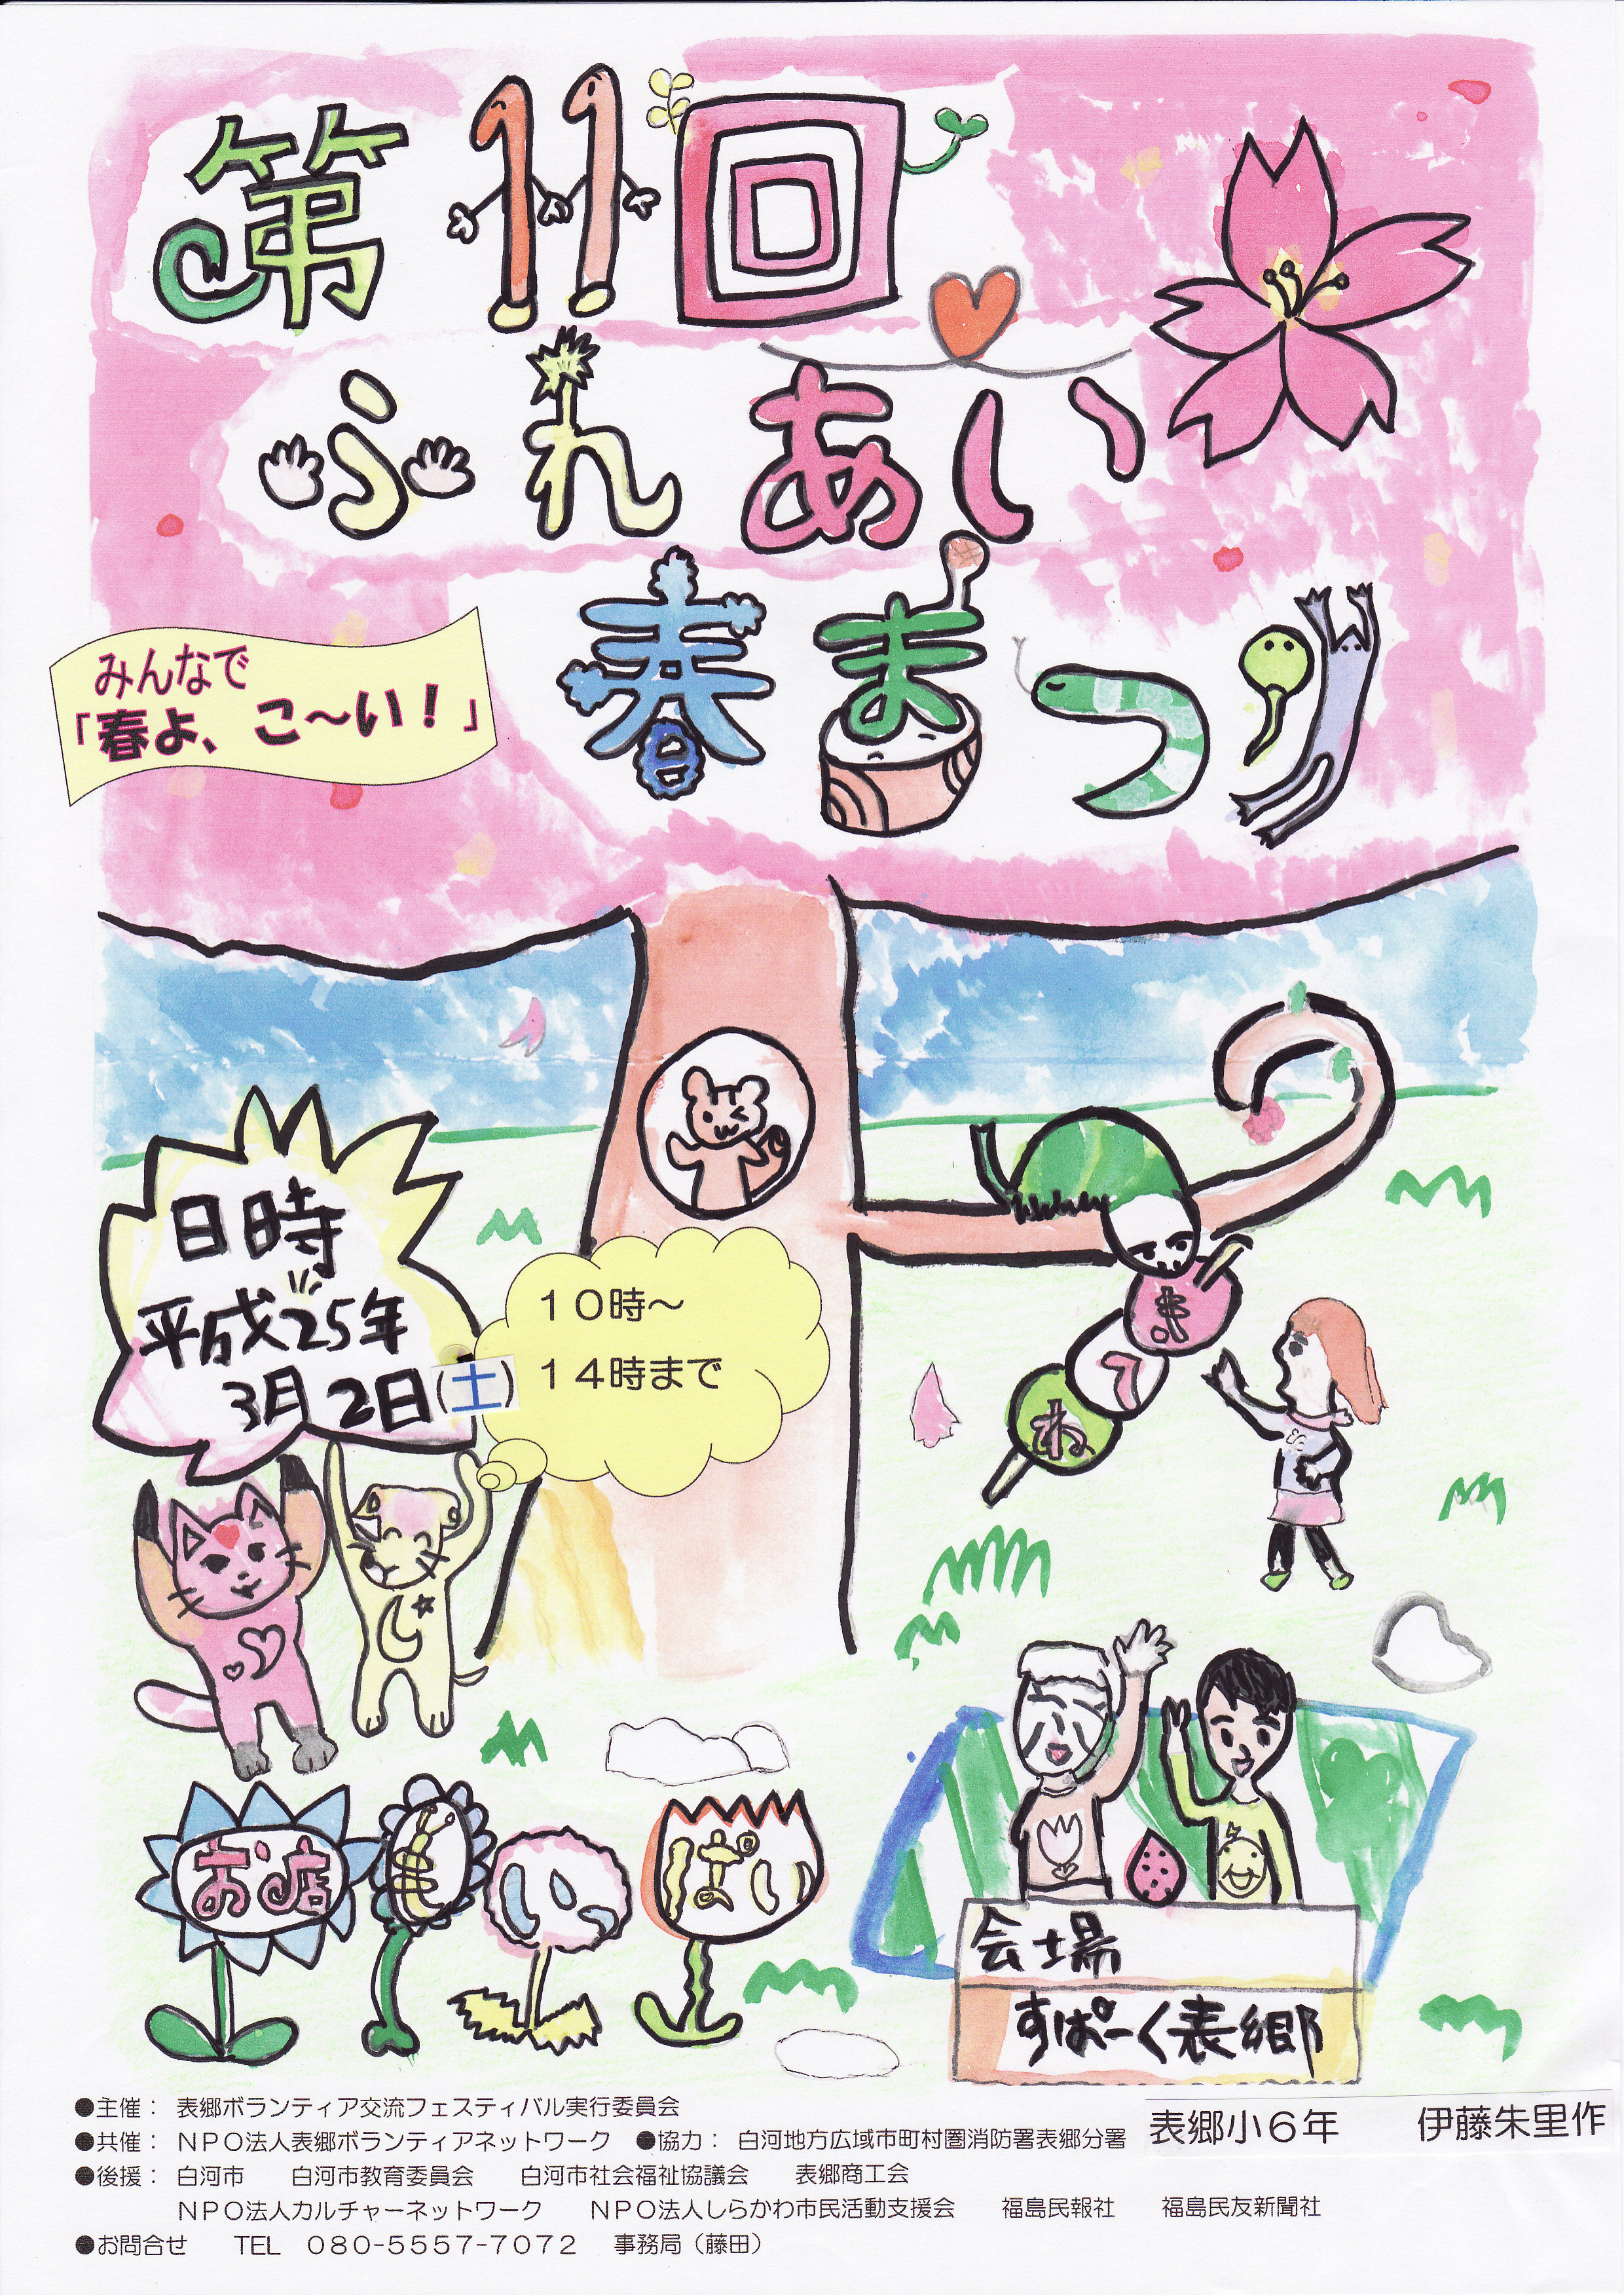 第11回
ふれあい
春まつり
みんなで
「春よ、こ～い！」
日時
平成25年
3月2日(土)
１０時～
１４時まで
まってるね
お店もいっぱい
会場
すぱーく表郷
●主催： 表郷ボランティア交流フェスティバル実行委員会
●共催： ＮＰＯ法人表郷ボランティアネットワーク ●協力： 白河地方広域市町村圏消防署表郷分署
表郷小６年 伊藤朱里作
●後援： 白河市 白河市教育委員会 白河市社会福祉協議会 表郷商工会
ＮＰＯ法人カルチャーネットワーク ＮＰＯ法人しらかわ市民活動支援会 福島民報社 福島民友新聞社
●お問合せ TEL ０８０-５５５７-７０７２ 事務局（藤田）